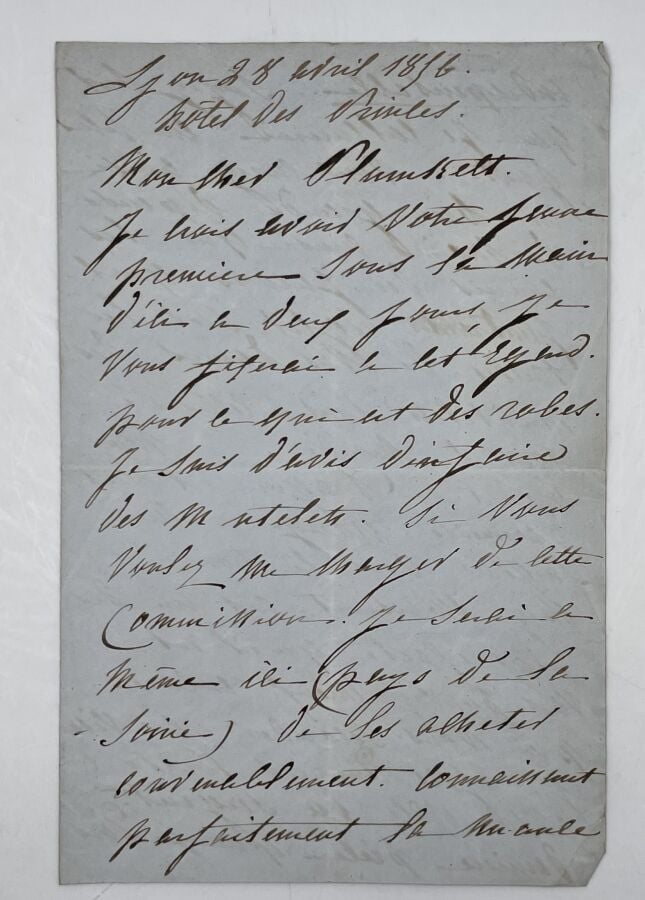 Lyon 28 avril 1856.
hotel des Princes.
Mon cher Plunkett.
Je crois avoir votre jeune
premiere sous la main
d'ici a deux jours je
vous fixerai a cet Egard.
pour ce qui est des robes.
Je suis d'avis d'en faire
des mantelets. Si vous
voulez me charger de cette
Commission. je serai a
même ici (pays de la
soirie) de les acheter
convenablement. connaissant
parfaitement la nuance